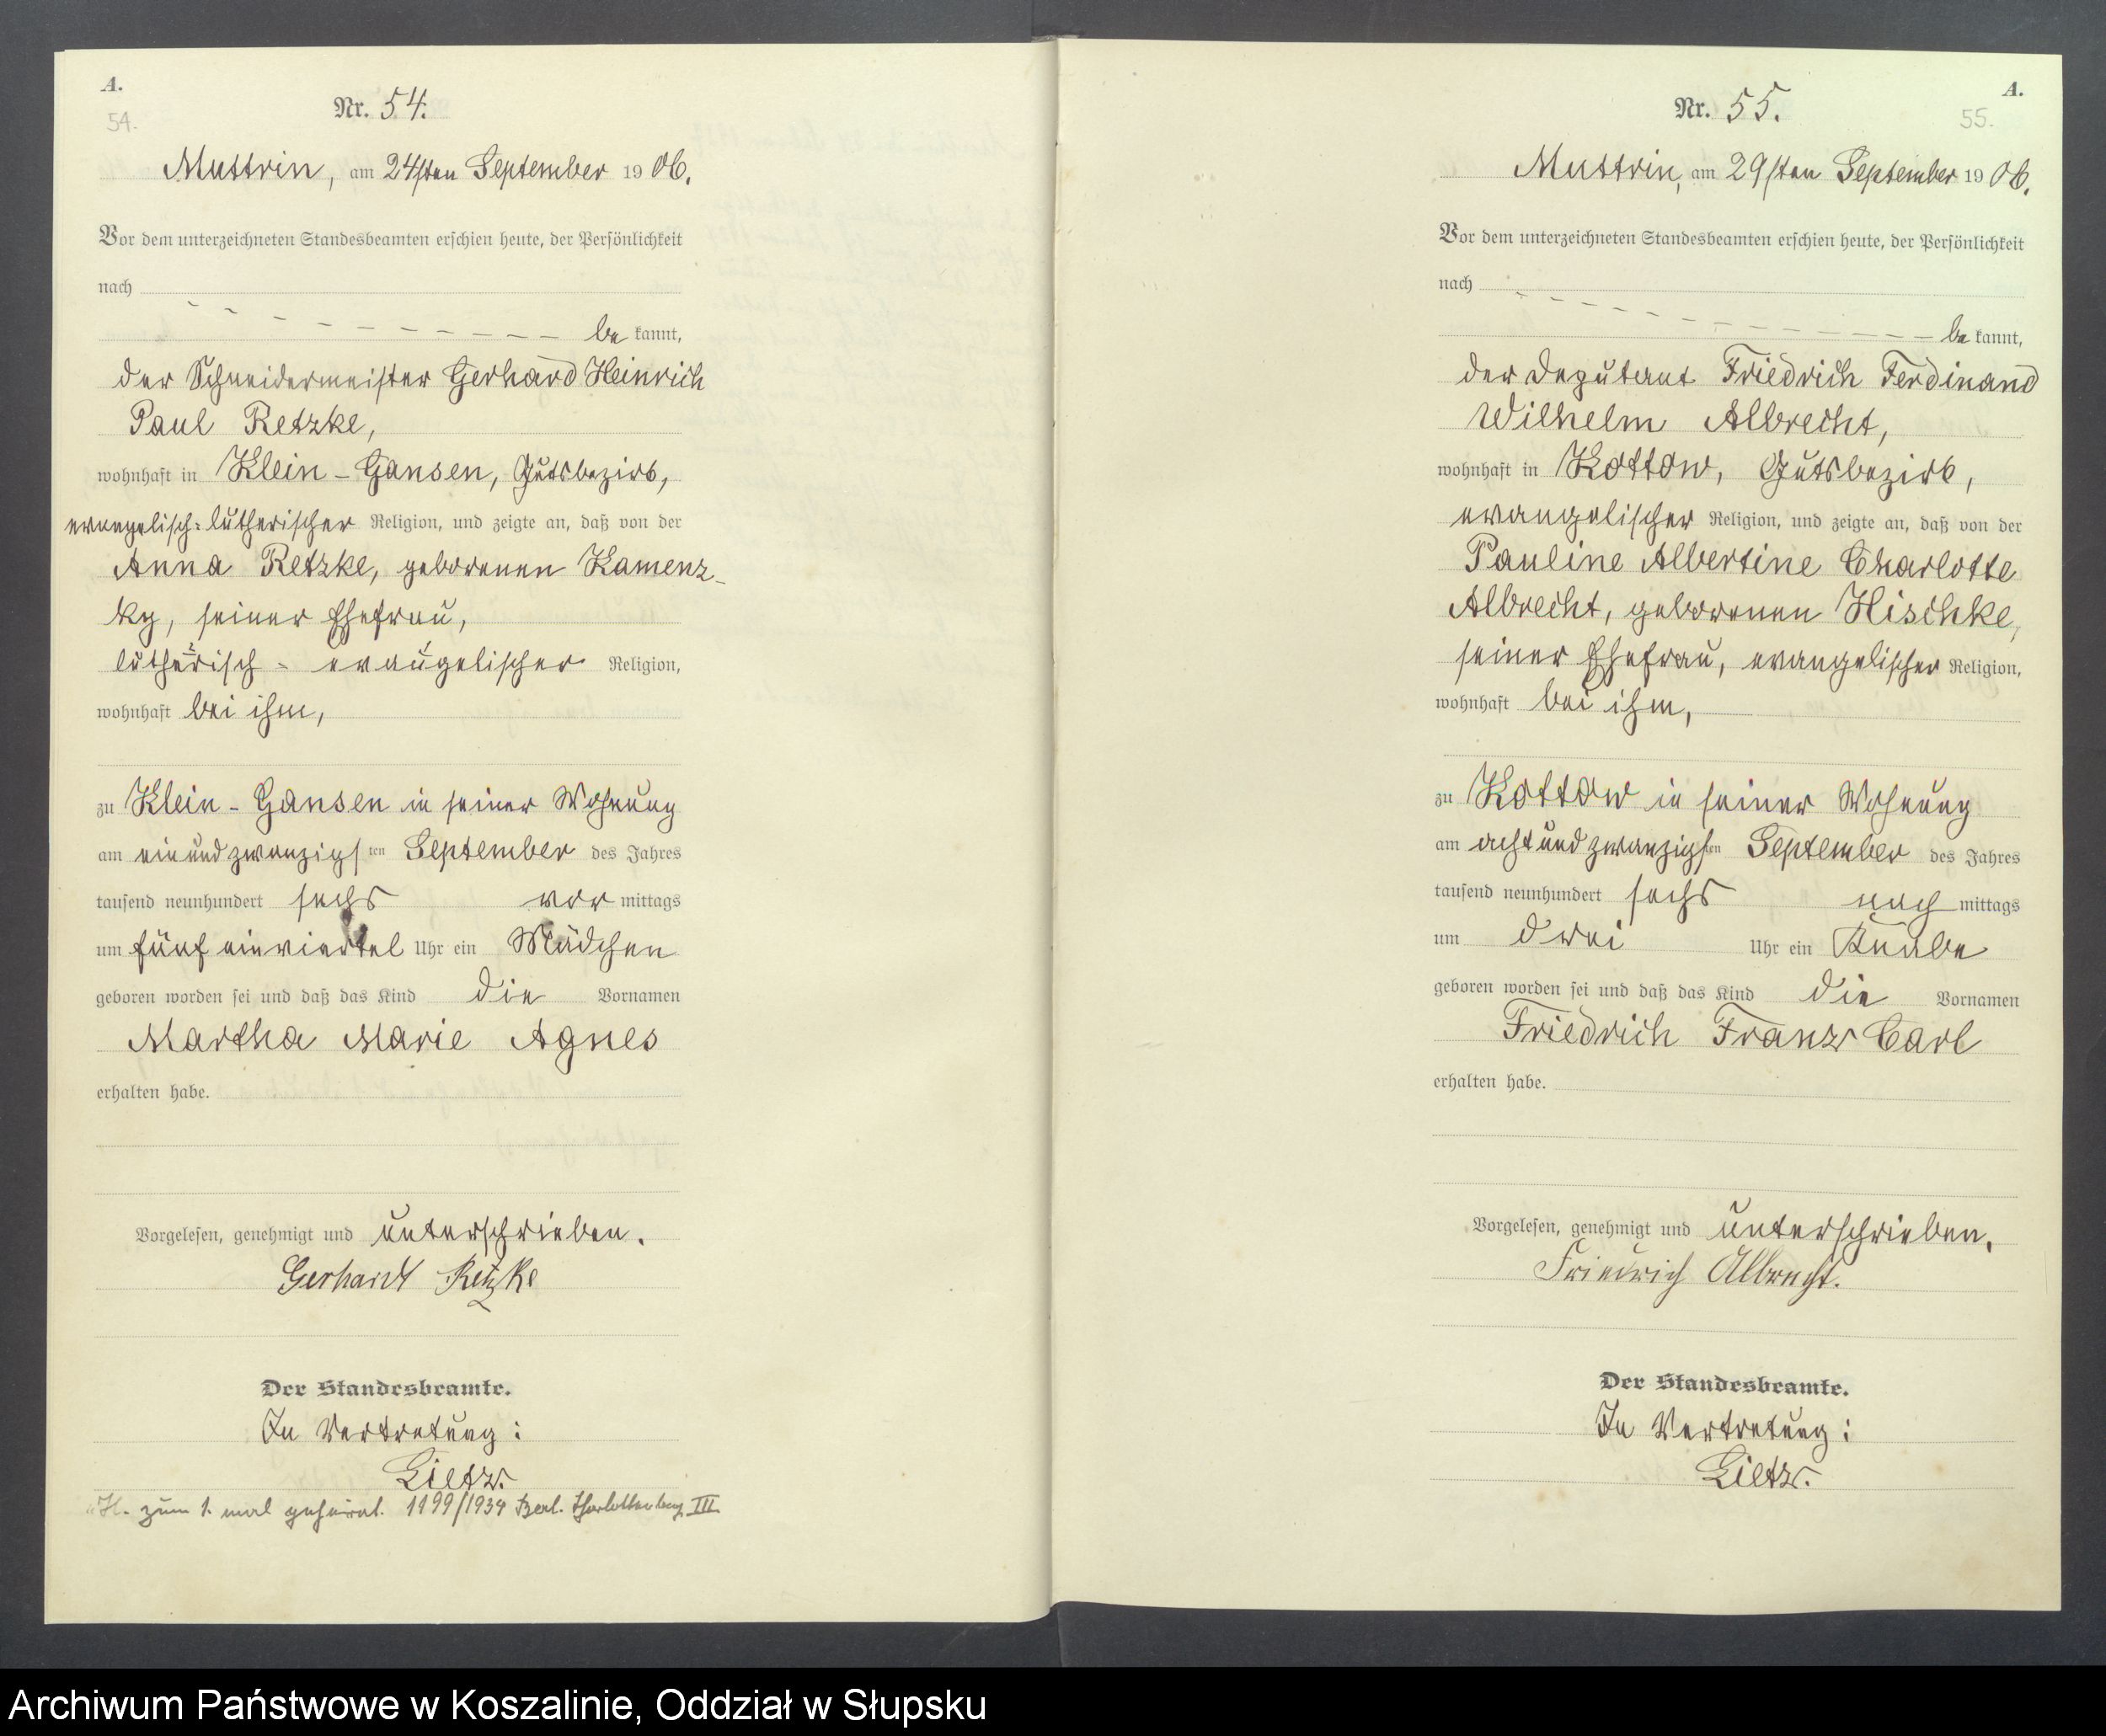 A.
54.
Nr. 54.
Muttrin, am 24sten September 1906.
Vor dem unterzeichneten Standesbeamten erschien heute, der Persönlichkeit
nach
be kannt,
der Schneidermeister Gerhard Heinrich
Paul Retzke,
wohnhaft in Klein-Gansen, Gutsbezirk,
evangelisch-lutherischer Religion, und zeigte an, daß von der
Anna Retzke, geborenen Kamenz-
ky, seiner Ehefrau,
lutherisch-evangelischer Religion,
wohnhaft bei ihm,
zu Klein-Gansen in seiner Wohnung
am einundzwanzigsten September des Jahres
tausend neunhundert sechs vor mittags
um fünf einviertel Uhr ein Mädchen
geboren worden sei und daß das Kind die Vornamen
Martha Marie Agnes
erhalten habe.
Vorgelesen, genehmigt und unterschrieben.
Gerhardt Retzke
Der Standesbeamte.
In Vertretung:
Lietz.
zum 1. mal geheirat. 1199/1934 Berl. Charlottenburg III
A.
55.
Nr. 55.
Muttrin, am 29sten September 1906.
Vor dem unterzeichneten Standesbeamten erschien heute, der Persönlichkeit
nach
be kannt,
der Deputant Friedrich Ferdinand
Wilhelm Albrecht,
wohnhaft in Kottow, Gutsbezirk,
evangelischer Religion, und zeigte an, daß von der
Pauline Albertine Charlotte
Albrecht, geborenen Hischke,
seiner Ehefrau, evangelischer Religion,
wohnhaft bei ihm,
zu Kottow in seiner Wohnung
am achtundzwanzigsten September des Jahres
tausend neunhundert sechs nach mittags
um drei Uhr ein Knabe
geboren worden sei und daß das Kind die Vornamen
Friedrich Franz Carl
erhalten habe.
Vorgelesen, genehmigt und unterschrieben.
Friedrich Albrecht.
Der Standesbeamte.
In Vertretung:
Lietz.
Archiwum Państwowe w Koszalinie, Oddział w Słupsku